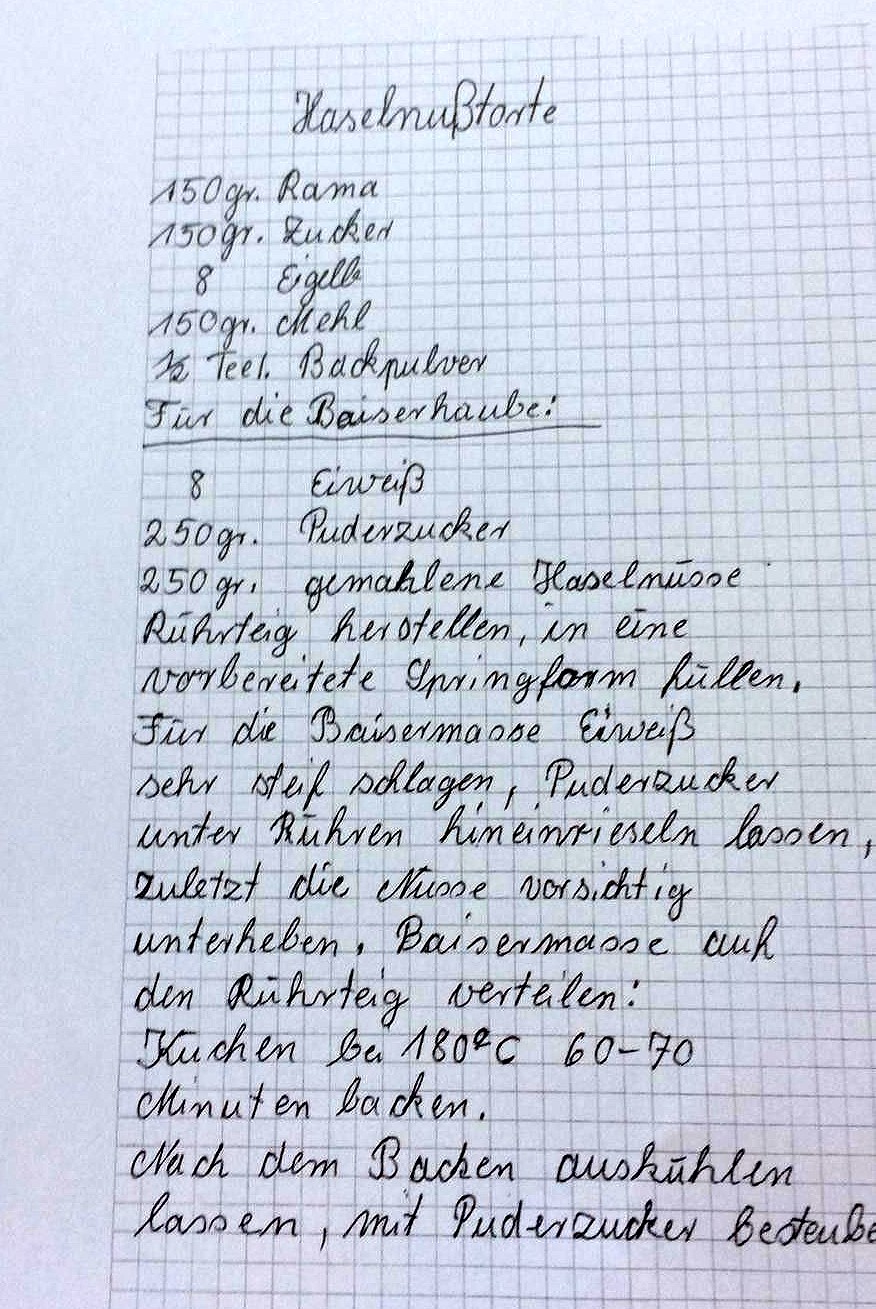 Haselnußtorte
150gr. Rama
150gr. Zucker
8 Eigelb
150gr. Mehl
1/2 Teel. Backpulver
Für die Baiserhaube:
8 Eiweiß
250gr. Puderzucker
250gr. gemahlene Haselnüsse
Rührteig herstellen, in eine
vorbereitete Springform füllen.
Für die Baisermasse Eiweiß
sehr steif schlagen, Puderzucker
unter Rühren hineinrieseln lassen,
zuletzt die Nüsse vorsichtig
unterheben. Baisermasse auf
den Rührteig verteilen:
Kuchen bei 180°C 60-70
Minuten backen.
Nach dem Backen auskühlen
lassen, mit Puderzucker besteube